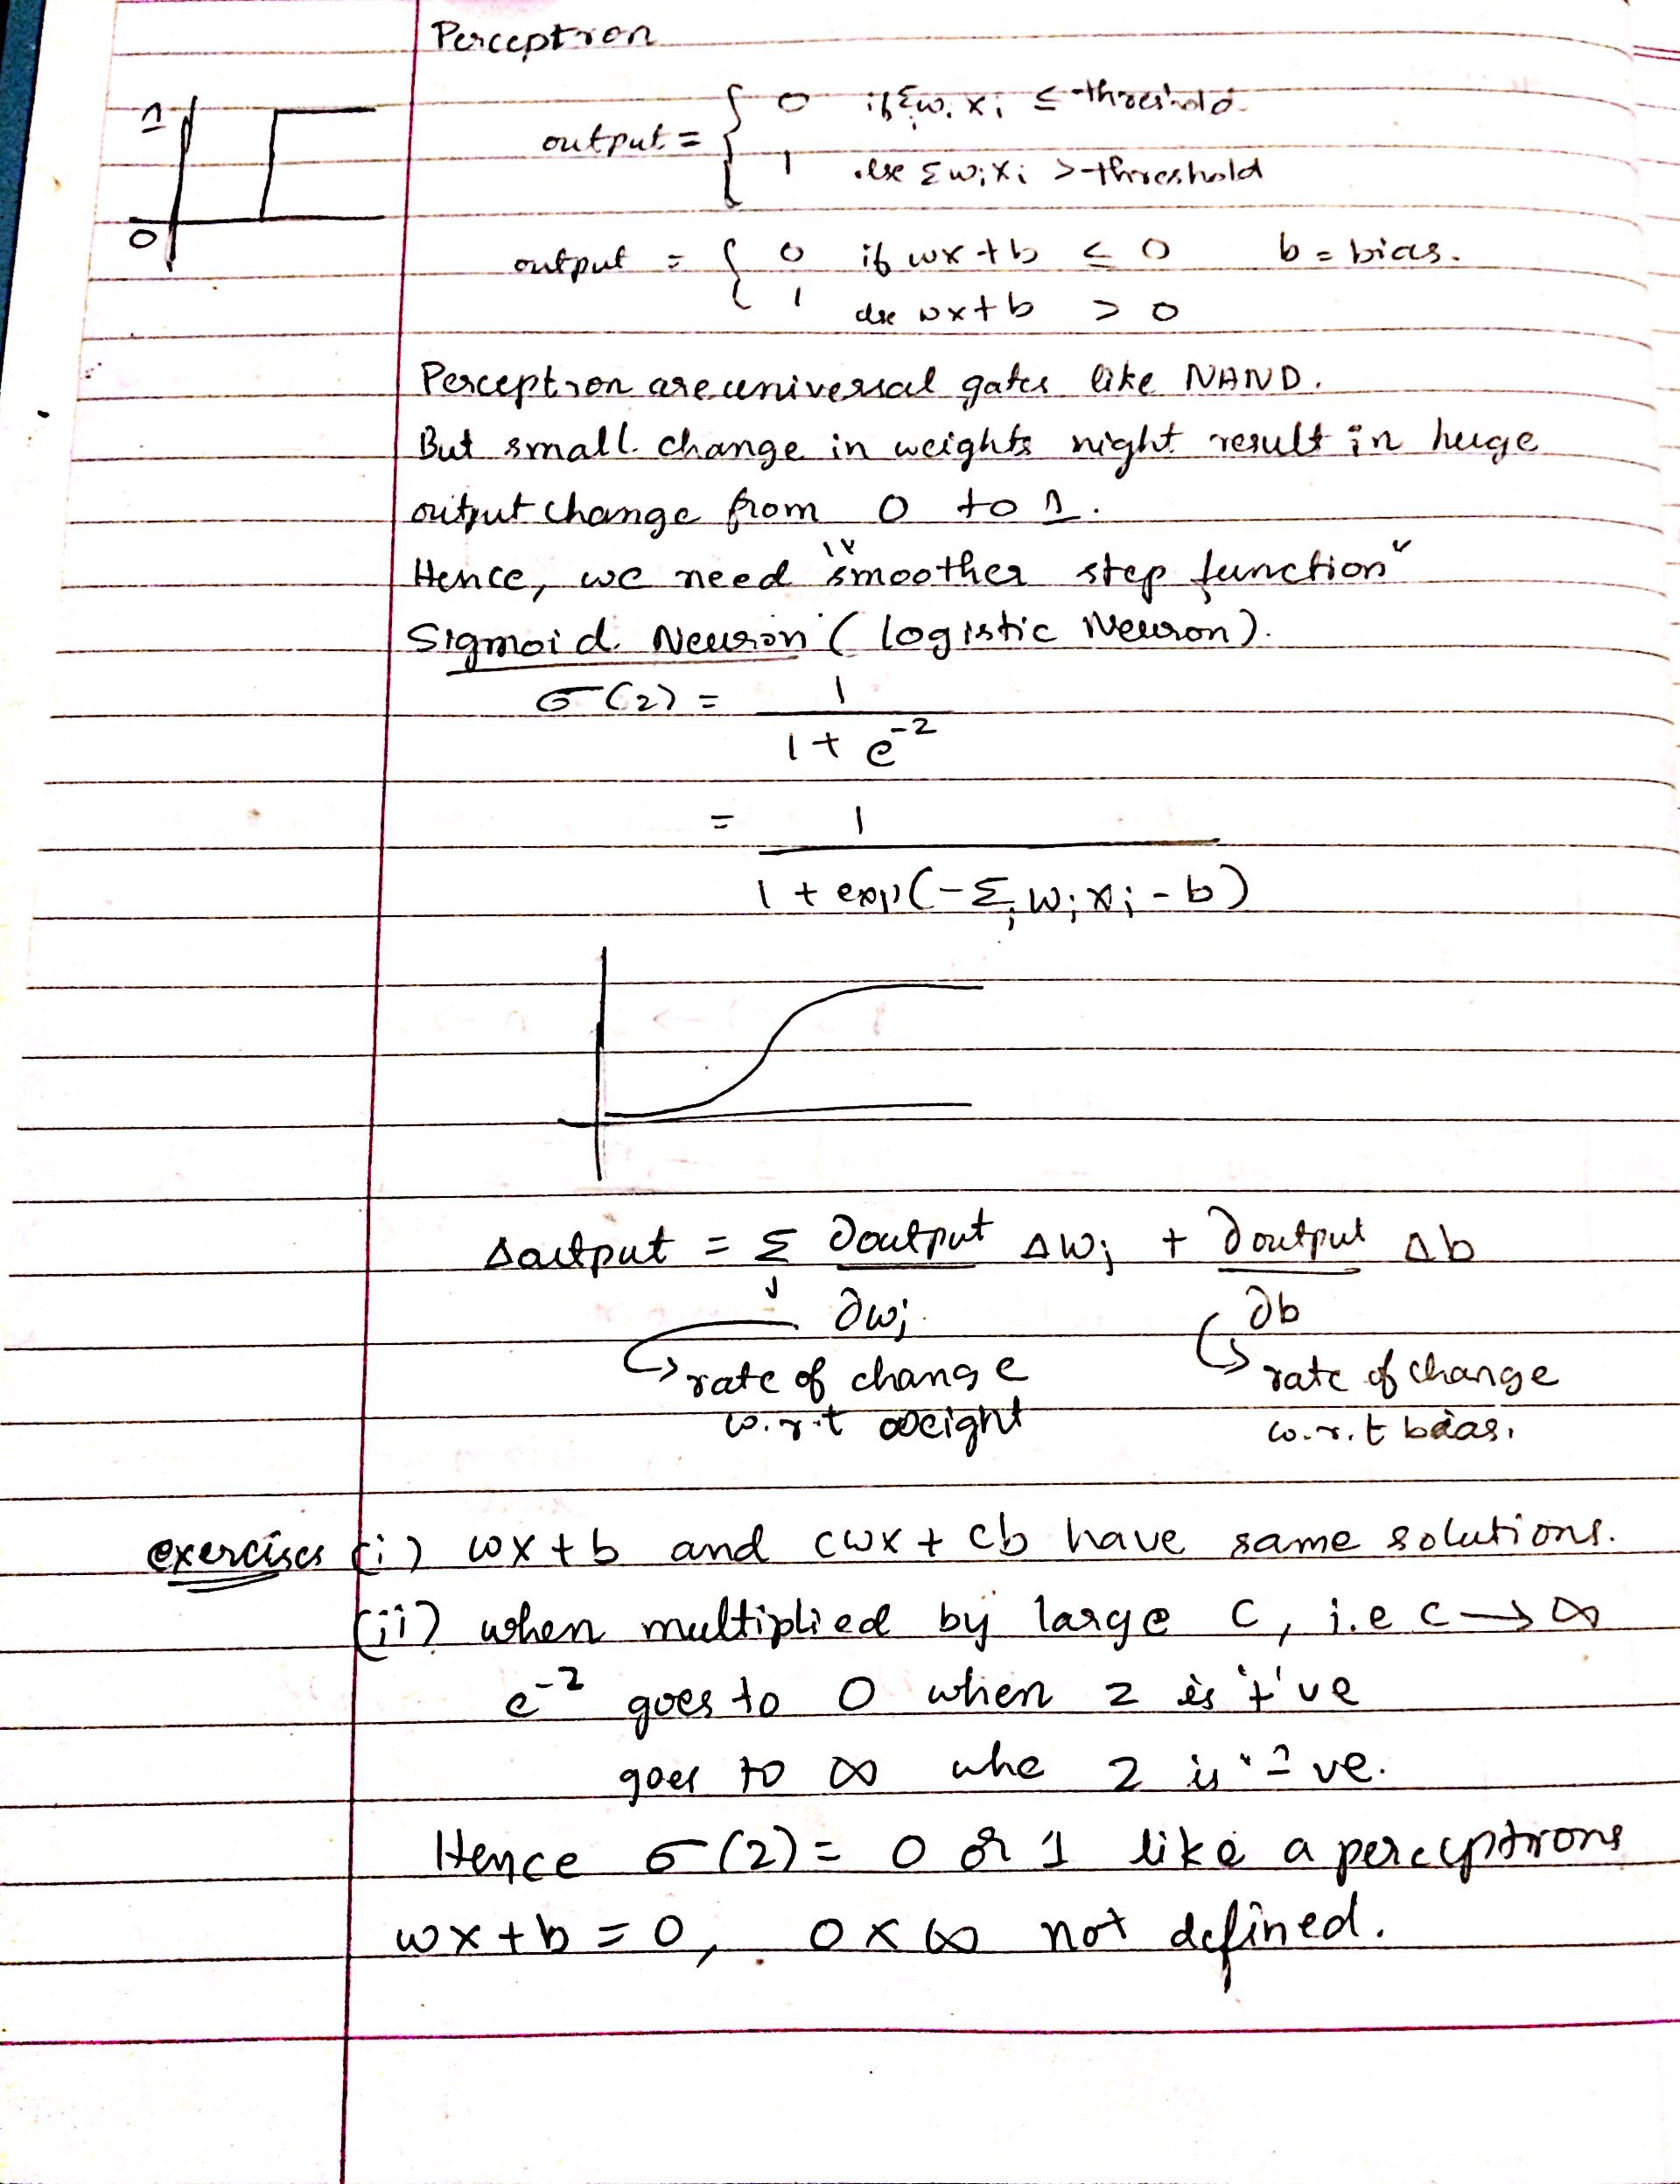 Perceptron
1
0
output = { 0 if Σᵢ wᵢ xᵢ ≤ threshold
1 else Σ wᵢ xᵢ > threshold
output = { 0 if wx + b ≤ 0 b = bias.
1 else wx + b > 0
Perceptron are universal gates like NAND.
But small change in weights night result in huge
output change from 0 to 1.
Hence, we need "smoother step function"
Sigmoid Neuron (logistic Neuron).
σ(z) = 1
1 + e^-z
= 1
1 + exp(-Σⱼ wⱼ xⱼ - b)
Δoutput = Σⱼ ∂output Δwⱼ + ∂output Δb
∂wⱼ ∂b
rate of change rate of change
w.r.t weight w.r.t bias.
exercises (i) wx + b and cwx + cb have same solutions.
(ii) when multiplied by large c, i.e c → ∞
e^-z goes to 0 when z is '+'ve
goes to ∞ whe z is "-"ve.
Hence σ(z) = 0 or 1 like a perceptrons
wx + b = 0, 0 x ∞ not defined.